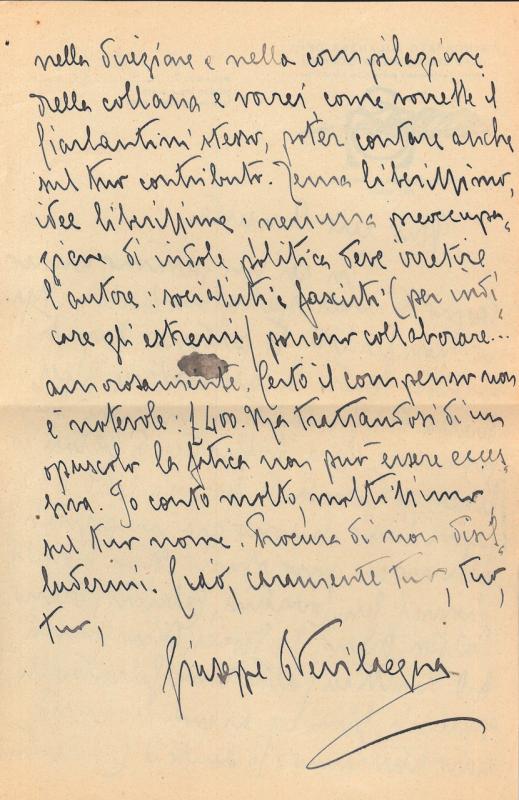 nella direzione e nella compilazione
della collana e vorrei, come vorrebbe il
Ciarlantini stesso, poter contare anche
sul tuo contributo. Tema liberissimo,
idee liberissime. nessuna preoccupa=
zione di indole politica deve irretire
l'autore: socialisti e fascisti (per indi
care gli estremi) possono collaborare...
amorosamente. Certo il compenso non
è notevole: £ 400. Ma trattandosi di un
opuscolo la fatica non può essere ecces=
siva. Io conto molto, moltissimo,
sul tuo nome. Procura di non disil=
ludermi. Ciao, caramente tuo, tuo,
tuo,
Giuseppe Bevilacqua